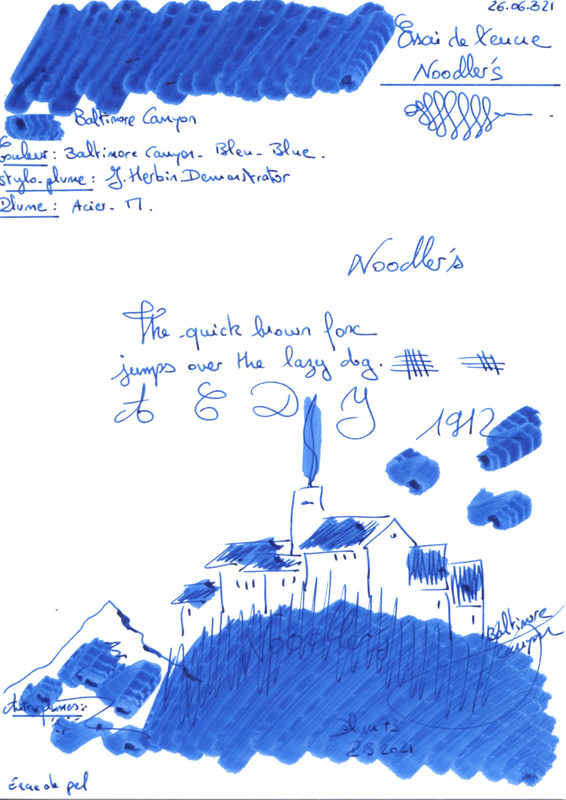 26.06.321
Essai de l'encre
Noodler's
Baltimore Canyon
Couleur : Baltimore Canyon - Bleu - Blue.
Stylo-plume : J. Herbin Demonstrator
Plume : Acier - M.
Noodler's
The quick brown fox
jumps over the lazy dog.
A E D Y
1912
Baltimore
Canyon
2021